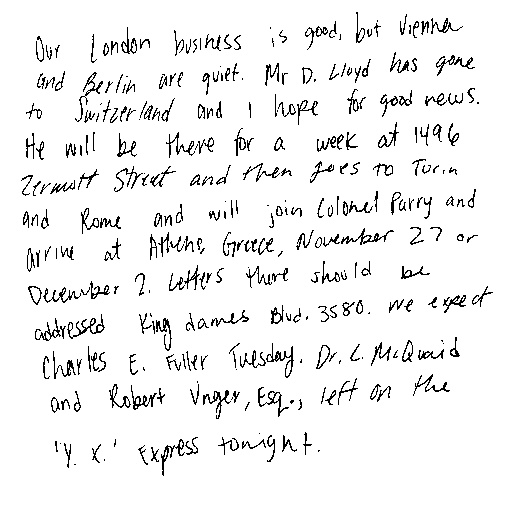 Our London business is good, but Vienna
and Berlin are quiet. Mr D. Lloyd has gone
to Switzerland and I hope for good news.
He will be there for a week at 1496
Zermott Street and then goes to Turin
and Rome and will join Colonel Parry and
arrive at Athens, Greece, November 27 or
December 2. Letters there should be
addressed King James Blvd. 3580. We expect
Charles E. Fuller Tuesday. Dr. L. McQuaid
and Robert Unger, Esq., left on the
'Y. X.' Express tonight.